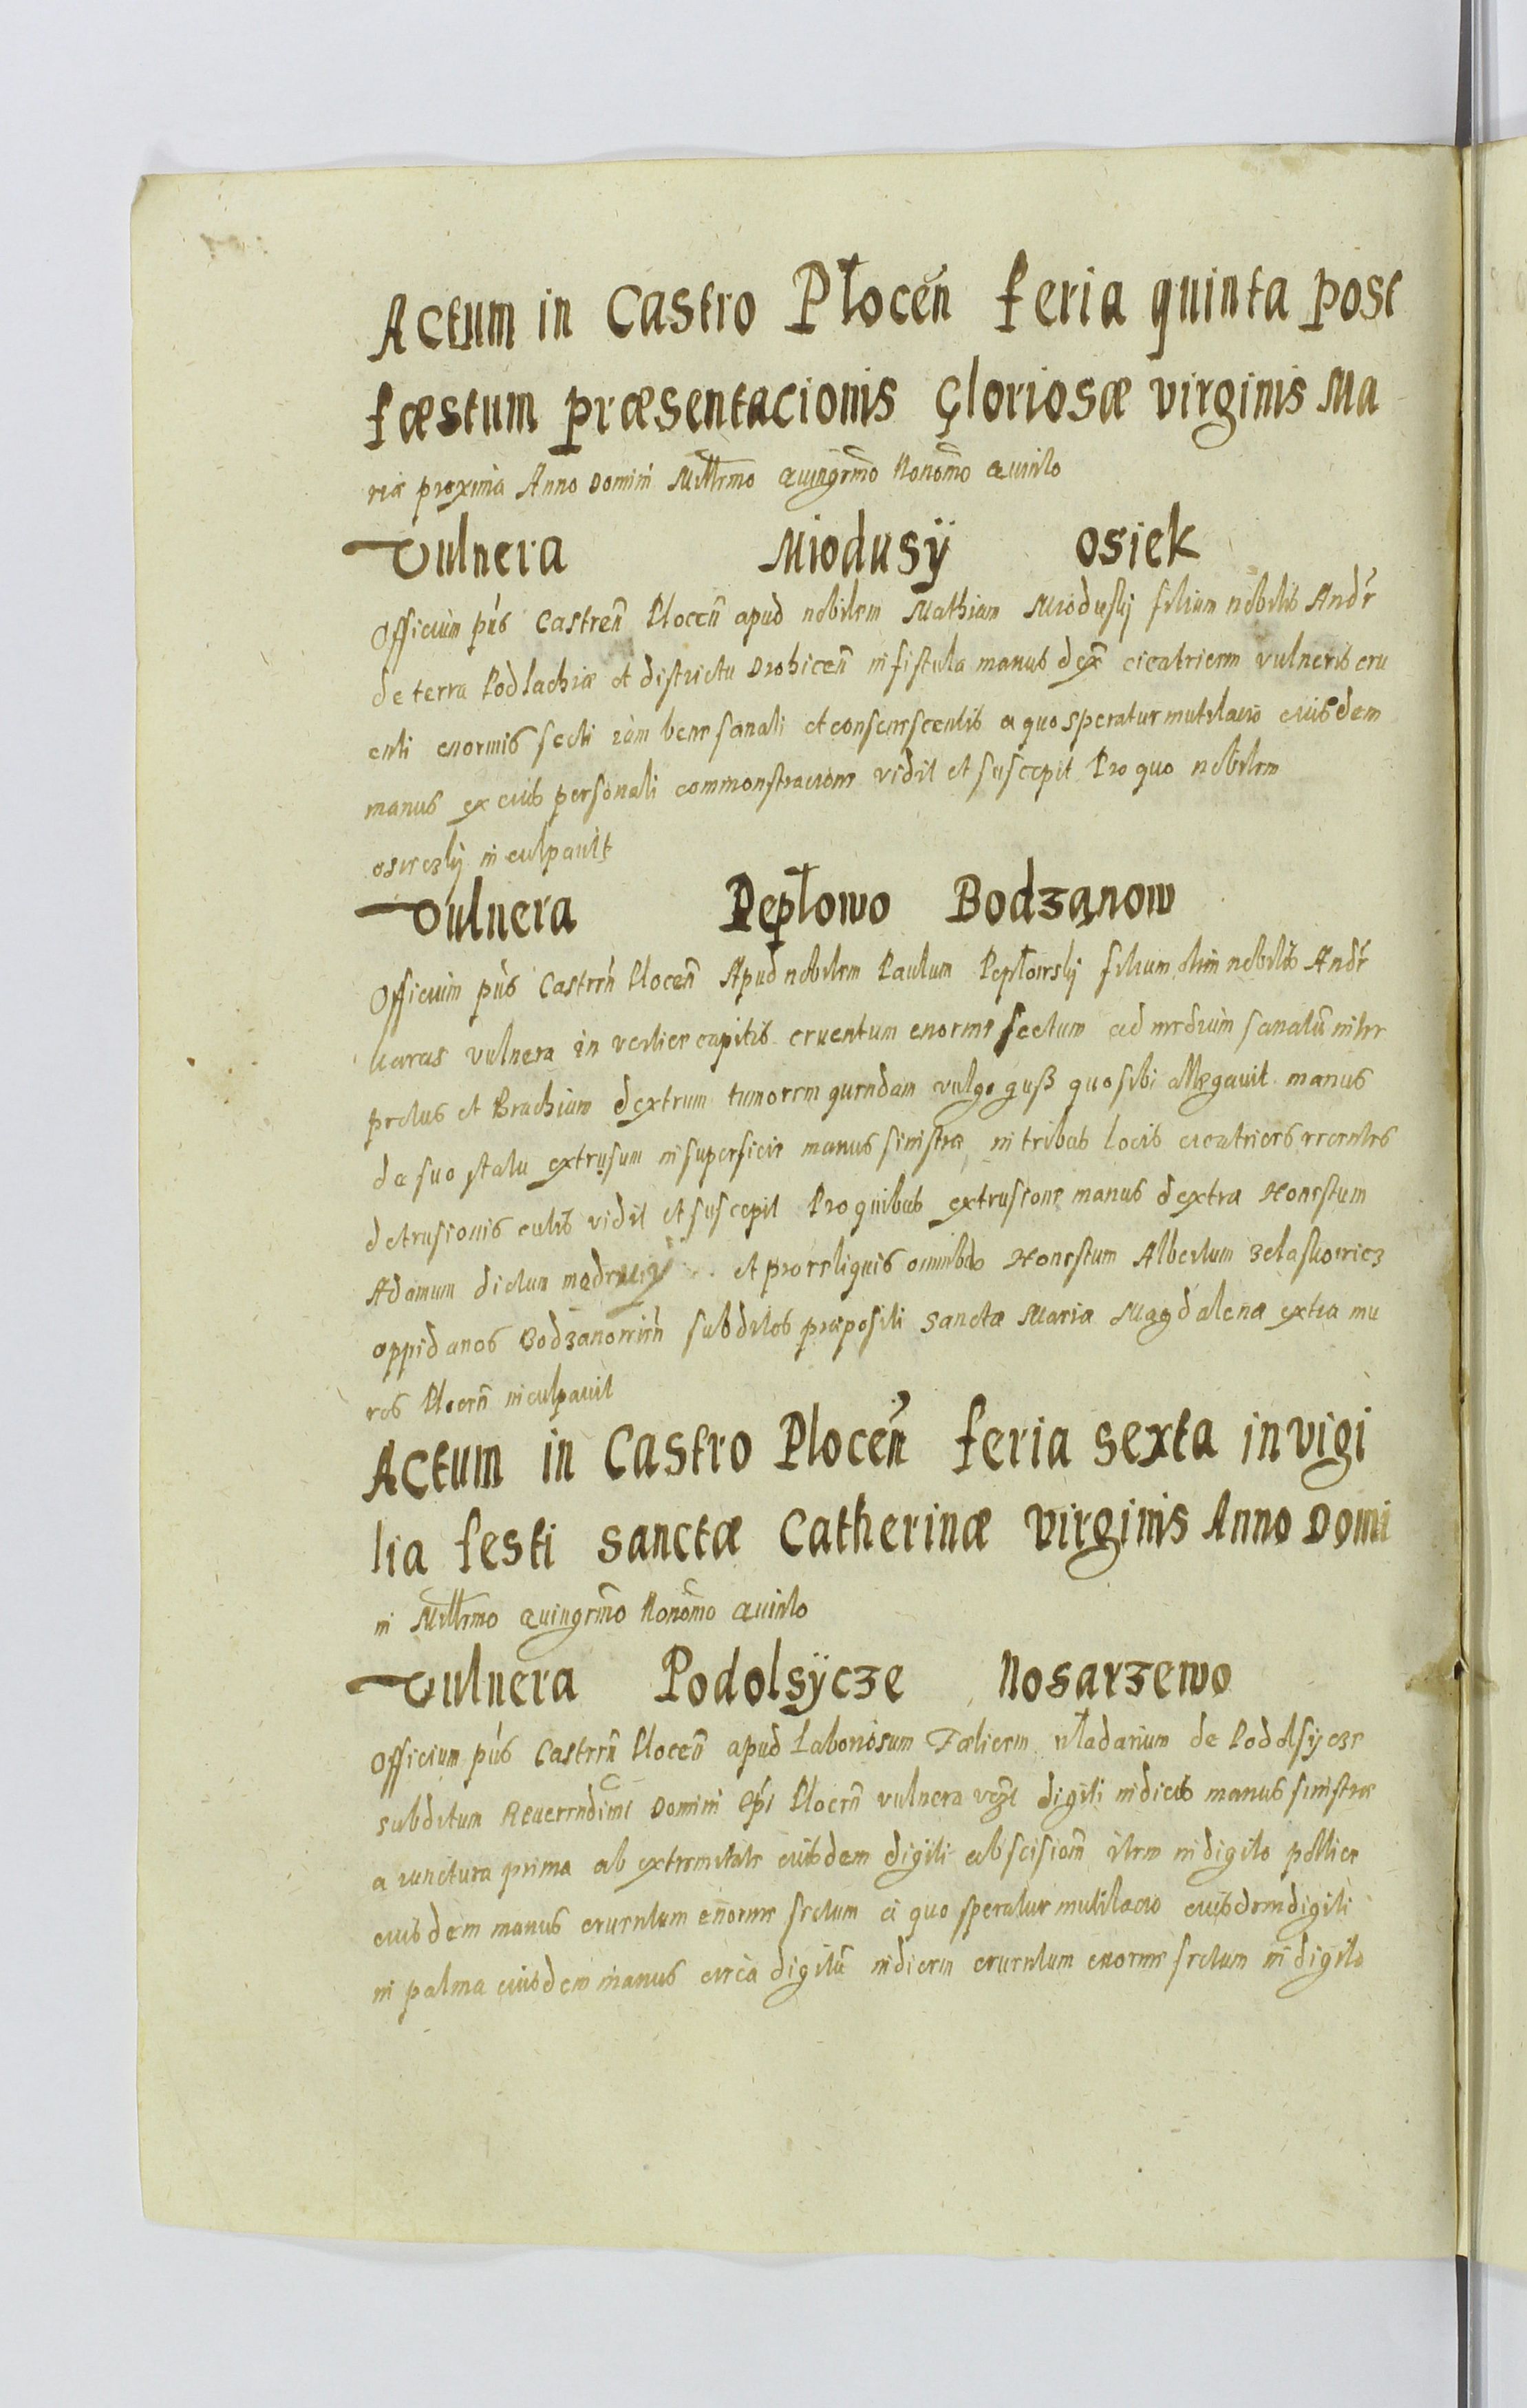 Actum in Castro Płoceń feria quinta post
fæstum præsentacionis Gloriosæ virginis Ma
riæ proxima Anno Domini Millemo Quingemo Nonomo Quinto
Vulnera Miodusÿ Osiek
Officium pńs Castreń Ploceń apud nobilem Mathiam Miodusky filium nobilis Andr
de terra Podlachiæ et districtu Drohiceń in fistula manus dex cicatricem vulneris cru
enti enormis secti iam bene sanati et consenscentis a quo speratur mutilacio eiusdem
manus ex eius personali commonstracione vidit et suscepit Pro quo nobilem
osieczky inculpavit
Vulnera Pepłowo Bodzanow
Officium pńs Castreń Ploceń Apud nobilem Paulum Pepłowsky filium olim nobilis Andr
vulnera in vertice capitis cruentum enorme sectum ad medium sanatū inter
pectus et Brachium dextrum tumorem quendam vulgo guß quo sibi allegavit manus
de suo statu extrusum in superficie manus sinistræ in tribus locis cicatrices recentes
detrusionis cutis vidit et suscepit Pro quibus extrusione manus dextra Honestum
Adamum dictum et pro reliquis omnibus Honestum Albertum Zelaskowicz
oppidanos Bodzanowień subditos præpositi Sanctæ Mariæ Magdalenæ extra mu
ros Ploceń inculpavit
Actum in Castro Ploceń feria sexta in vigi
lia festi sanctæ Catherinæ virginis Anno Domi
ni Millemo Quingemo Nonomo Quinto
Vulnera Podolsÿcze Nosarzewo
Officium pńs Castreń Ploceń apud Laboriosum Fælicem włodarium de Podolsycze
subditum Reverendimi Domini Epi Ploceń vulnera digiti indicis manus sinistræ
a iunctura prima ab extremitate eiusdem digiti abscisiom item in digito pollice
eiusdem manus cruentum enorme sectum a quo speratur mutilacio eiusdem digiti
in palma eiusdem manus circa digitū indicem cruentum enorme sectum in digito